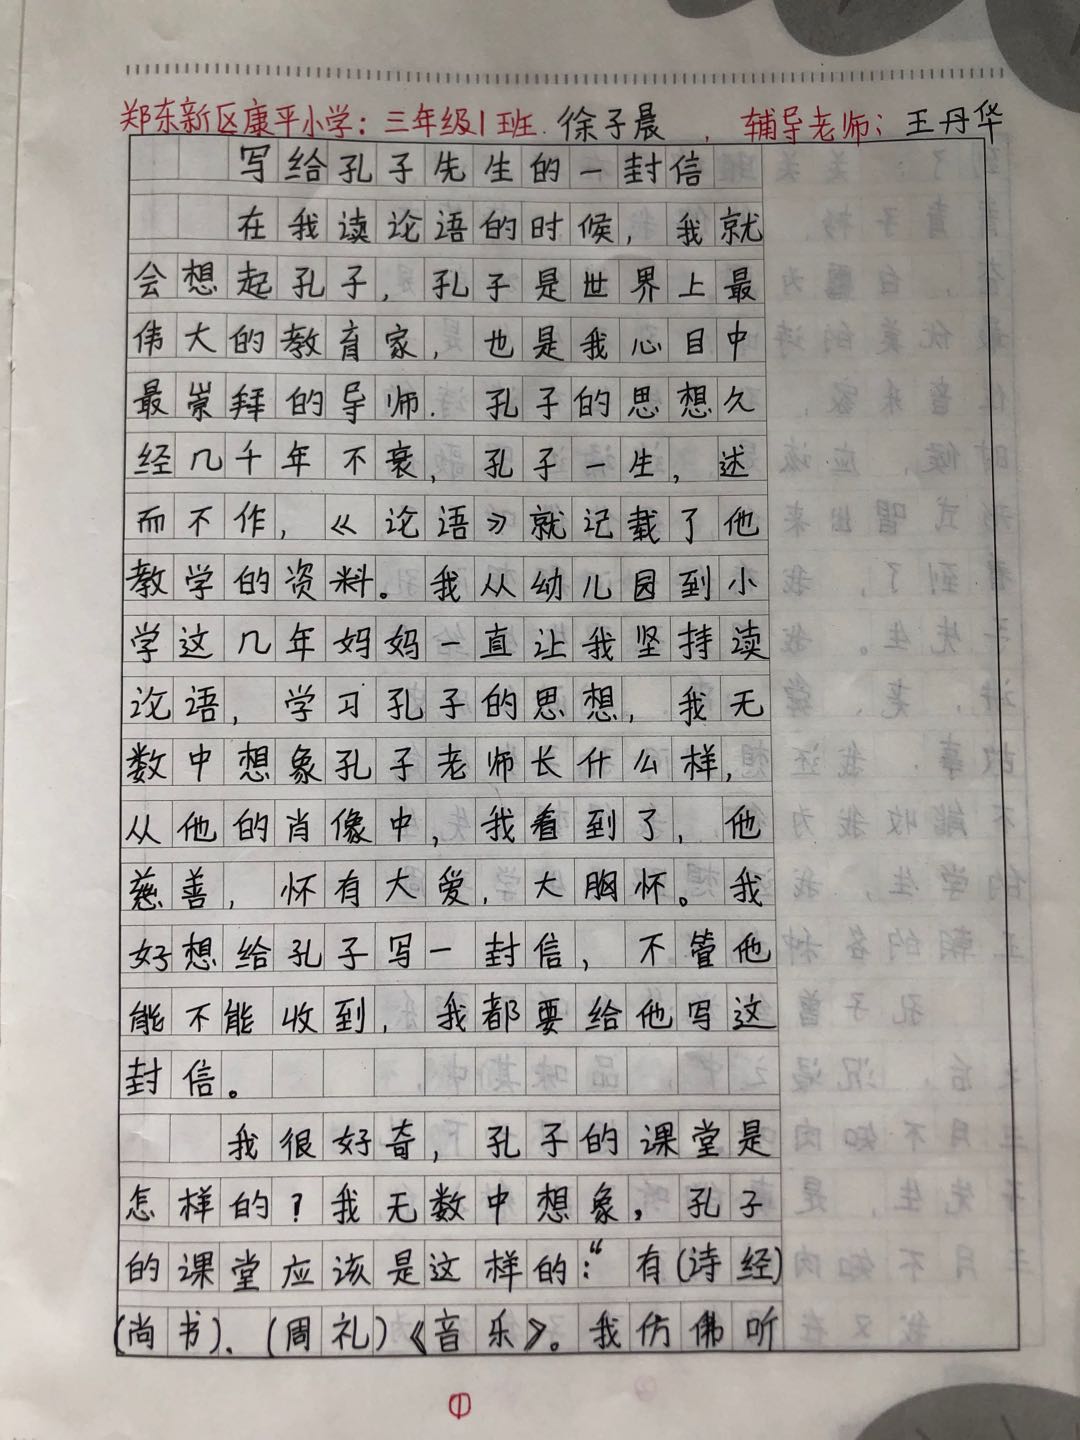 郑东新区康平小学：三年级1班.徐子晨，辅导老师：王丹华
写给孔子先生的一封信
在我读论语的时候，我就
会想起孔子，孔子是世界上最
伟大的教育家，也是我心目中
最崇拜的导师.孔子的思想久
经几千年不衰，孔子一生，述
而不作，《论语》就记载了他
教学的资料。我从幼儿园到小
学这几年妈妈一直让我坚持读
论语，学习孔子的思想，我无
数中想象孔子老师长什么样，
从他的肖像中，我看到了，他
慈善，怀有大爱，大胸怀。我
好想给孔子写一封信，不管他
能不能收到，我都要给他写这
封信。
我很好奇，孔子的课堂是
怎样的？我无数中想象，孔子
的课堂应该是这样的：“有(诗经)
(尚书)、(周礼)《音乐》。我仿佛听
①